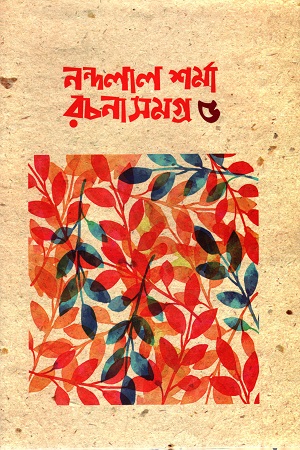 নন্দলাল শর্মা
রচনাসমগ্র ৫